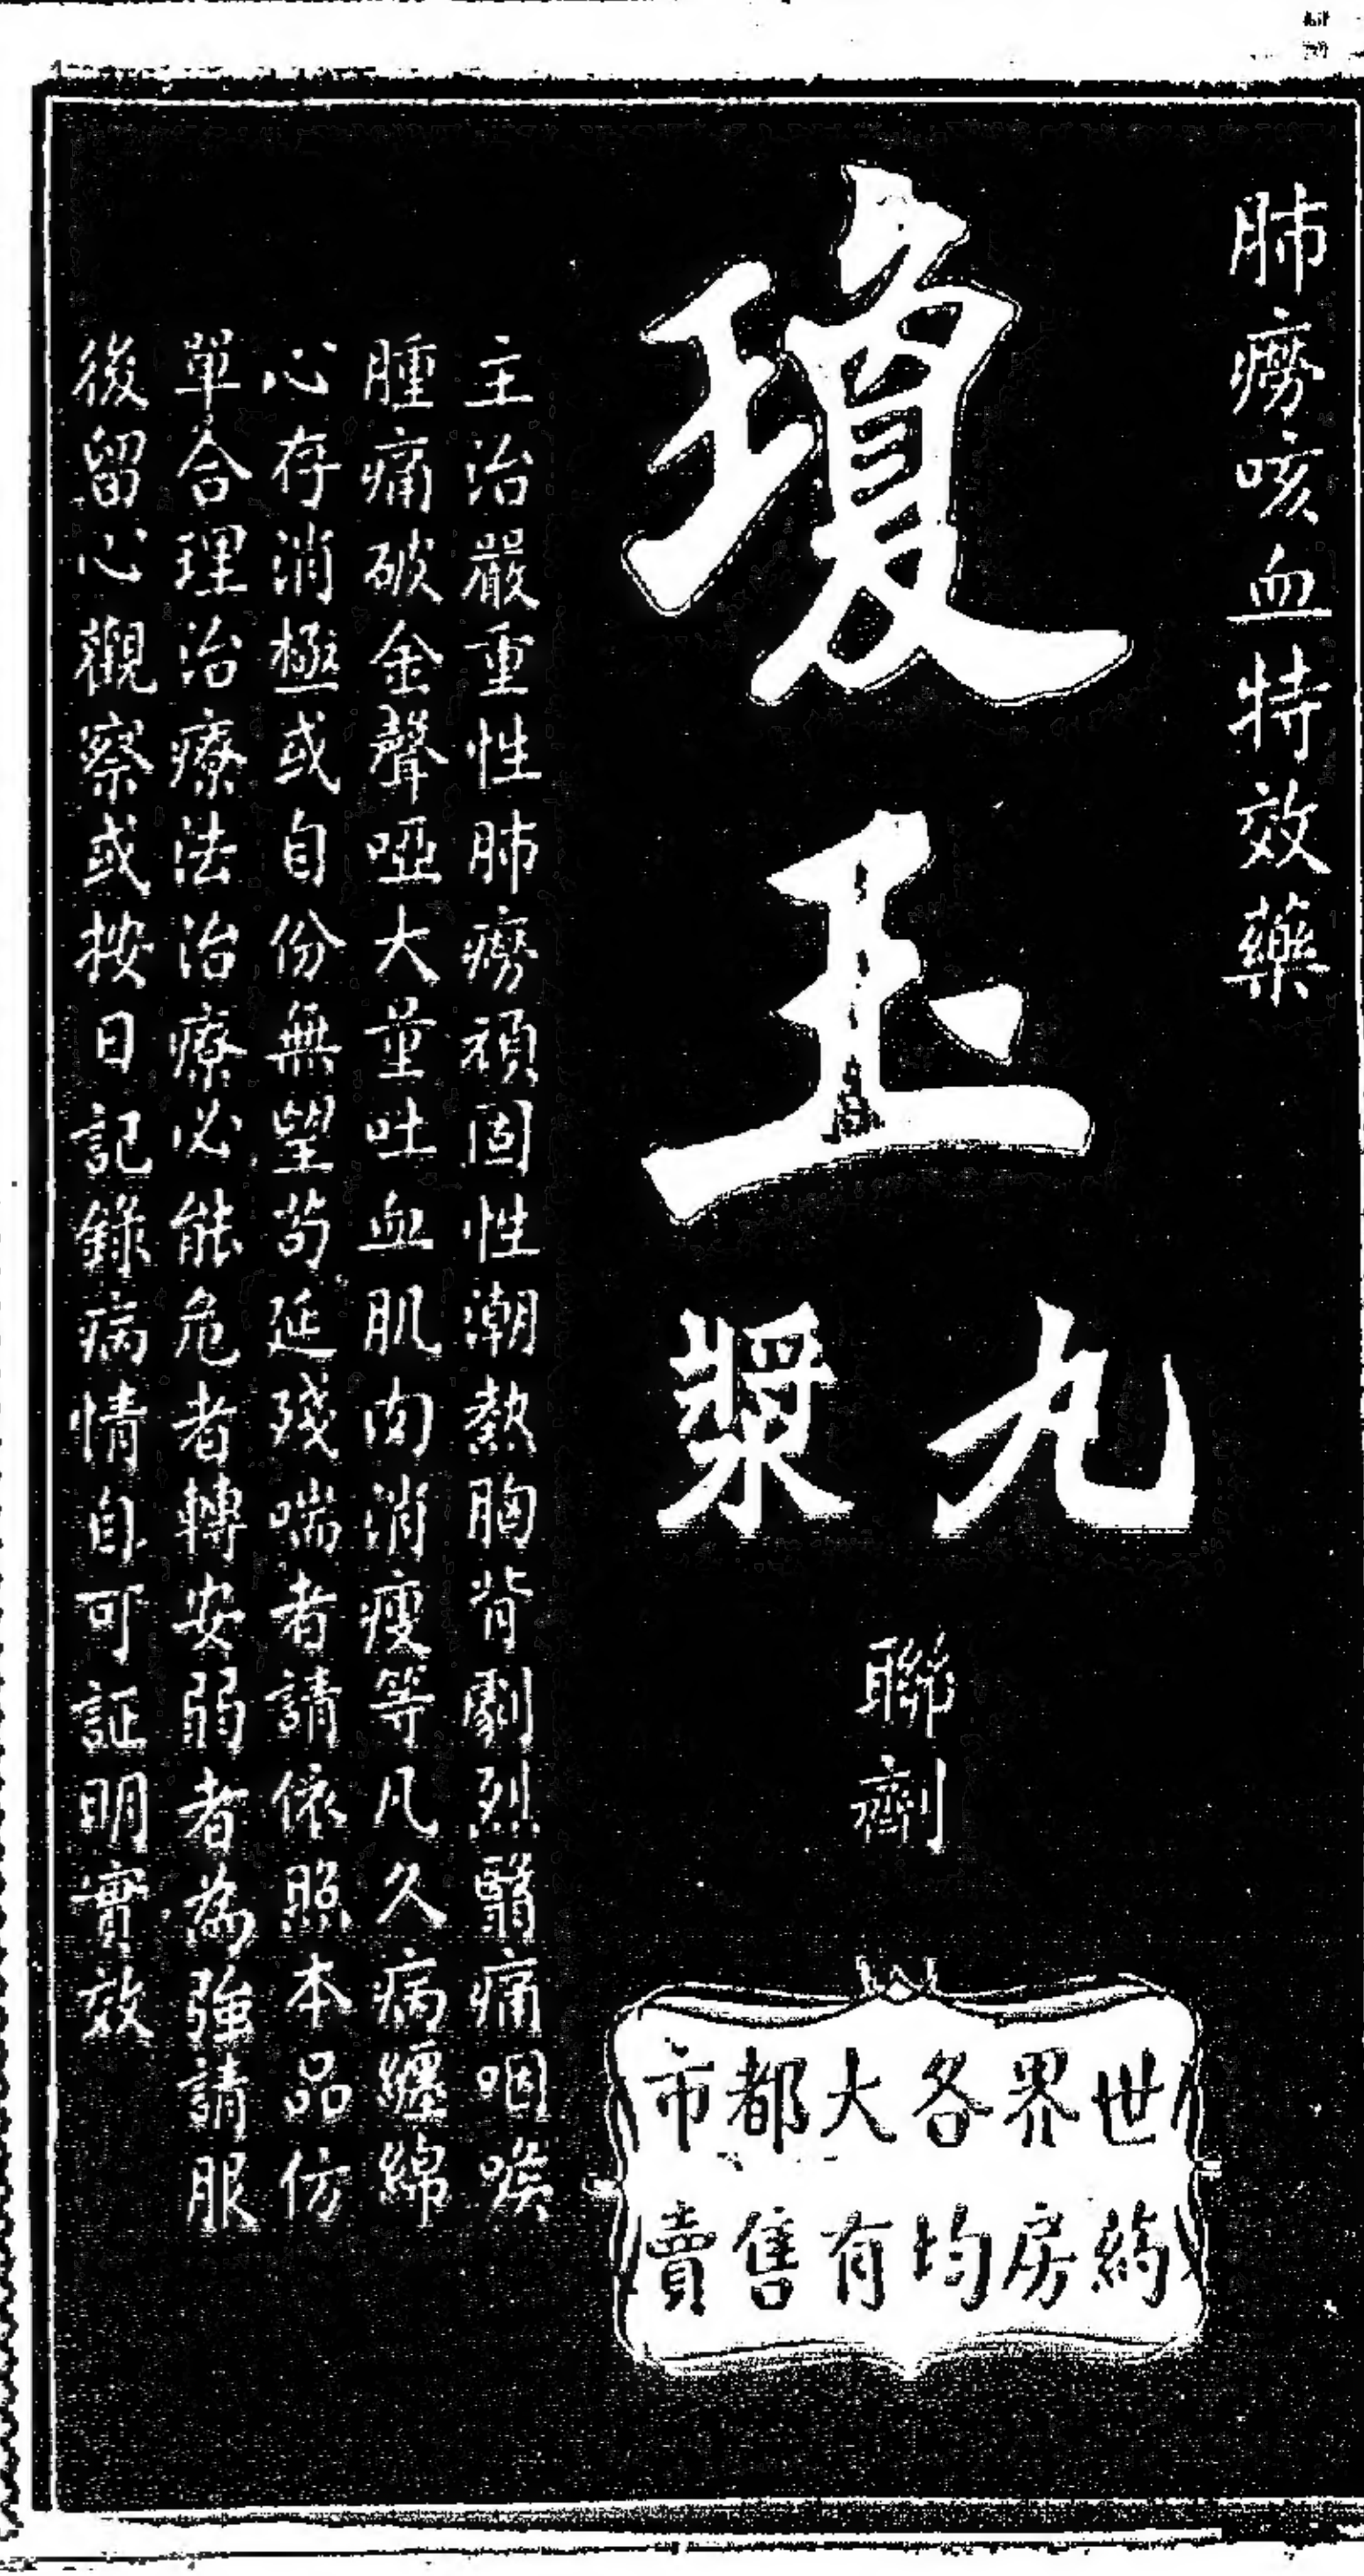 肺癆咳血特效藥
瓊玉
丸漿
聯劑
世界各大都市
药房均有售賣
主治嚴重性肺癆頑固性潮熱胸背劇烈翳痛咽喉
腫痛破金聲啞大量吐血肌肉消瘦等凡久病纏綿
心存消極或自份無望苟延殘喘者請依照本品仿
單合理治療法治療必能危者轉安弱者為強請服
後留心觀察或按日記錄病情自可証明實效